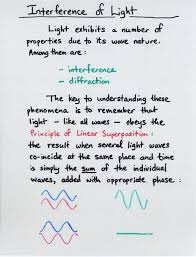 Interference of Light
Light exhibits a number of
properties due to its wave nature.
Among them are :
- interference
- diffraction
The key to understanding these
phenomena is to remember that
light - like all waves - obeys the
Principle of Linear Superposition :
the result when several light waves
co-incide at the same place and time
is simply the sum of the individual
waves, added with appropriate phase :